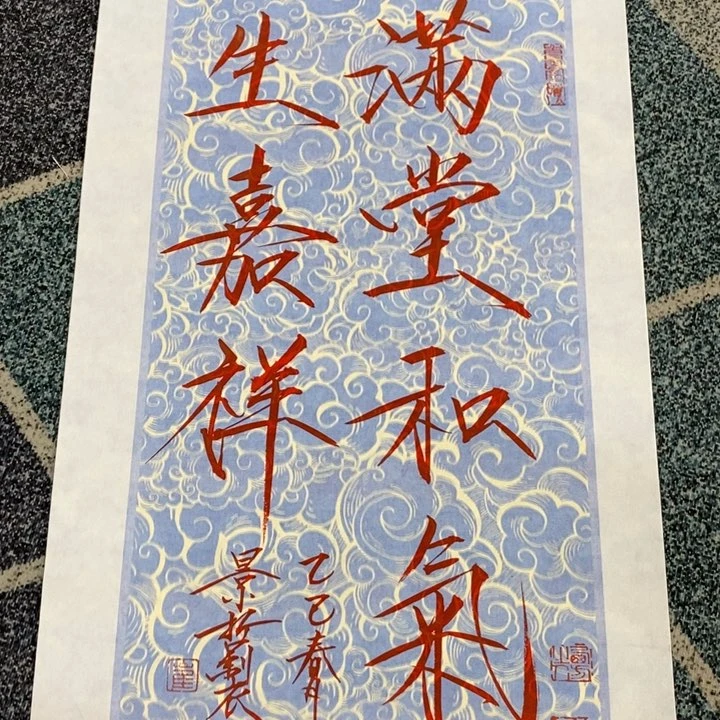 滿堂和氣
生嘉祥
乙巳春月
景於製